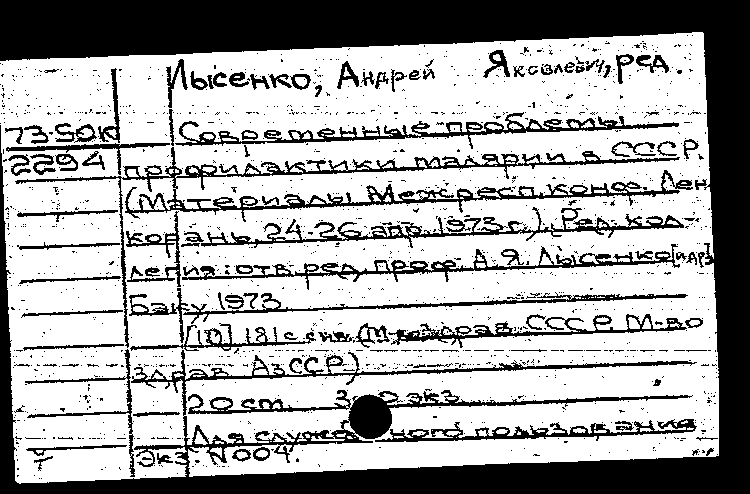 Лысенко, Андрей Яковлевич, ред.
73-50К
2294
Современные проблемы
профилактики малярии в СССР.
(Материалы Межресп. конф. Лен-
корань, 24-26 апр. 1973 г.). Ред. кол-
легия: отв. ред. проф. А.Я. Лысенко [и др.]
Баку, 1973
[10], 181 с. (М-во здрав. СССР. М-во
здрав. АзССР)
20 см. экз.
Для служебного пользования.
Экз. N 004.